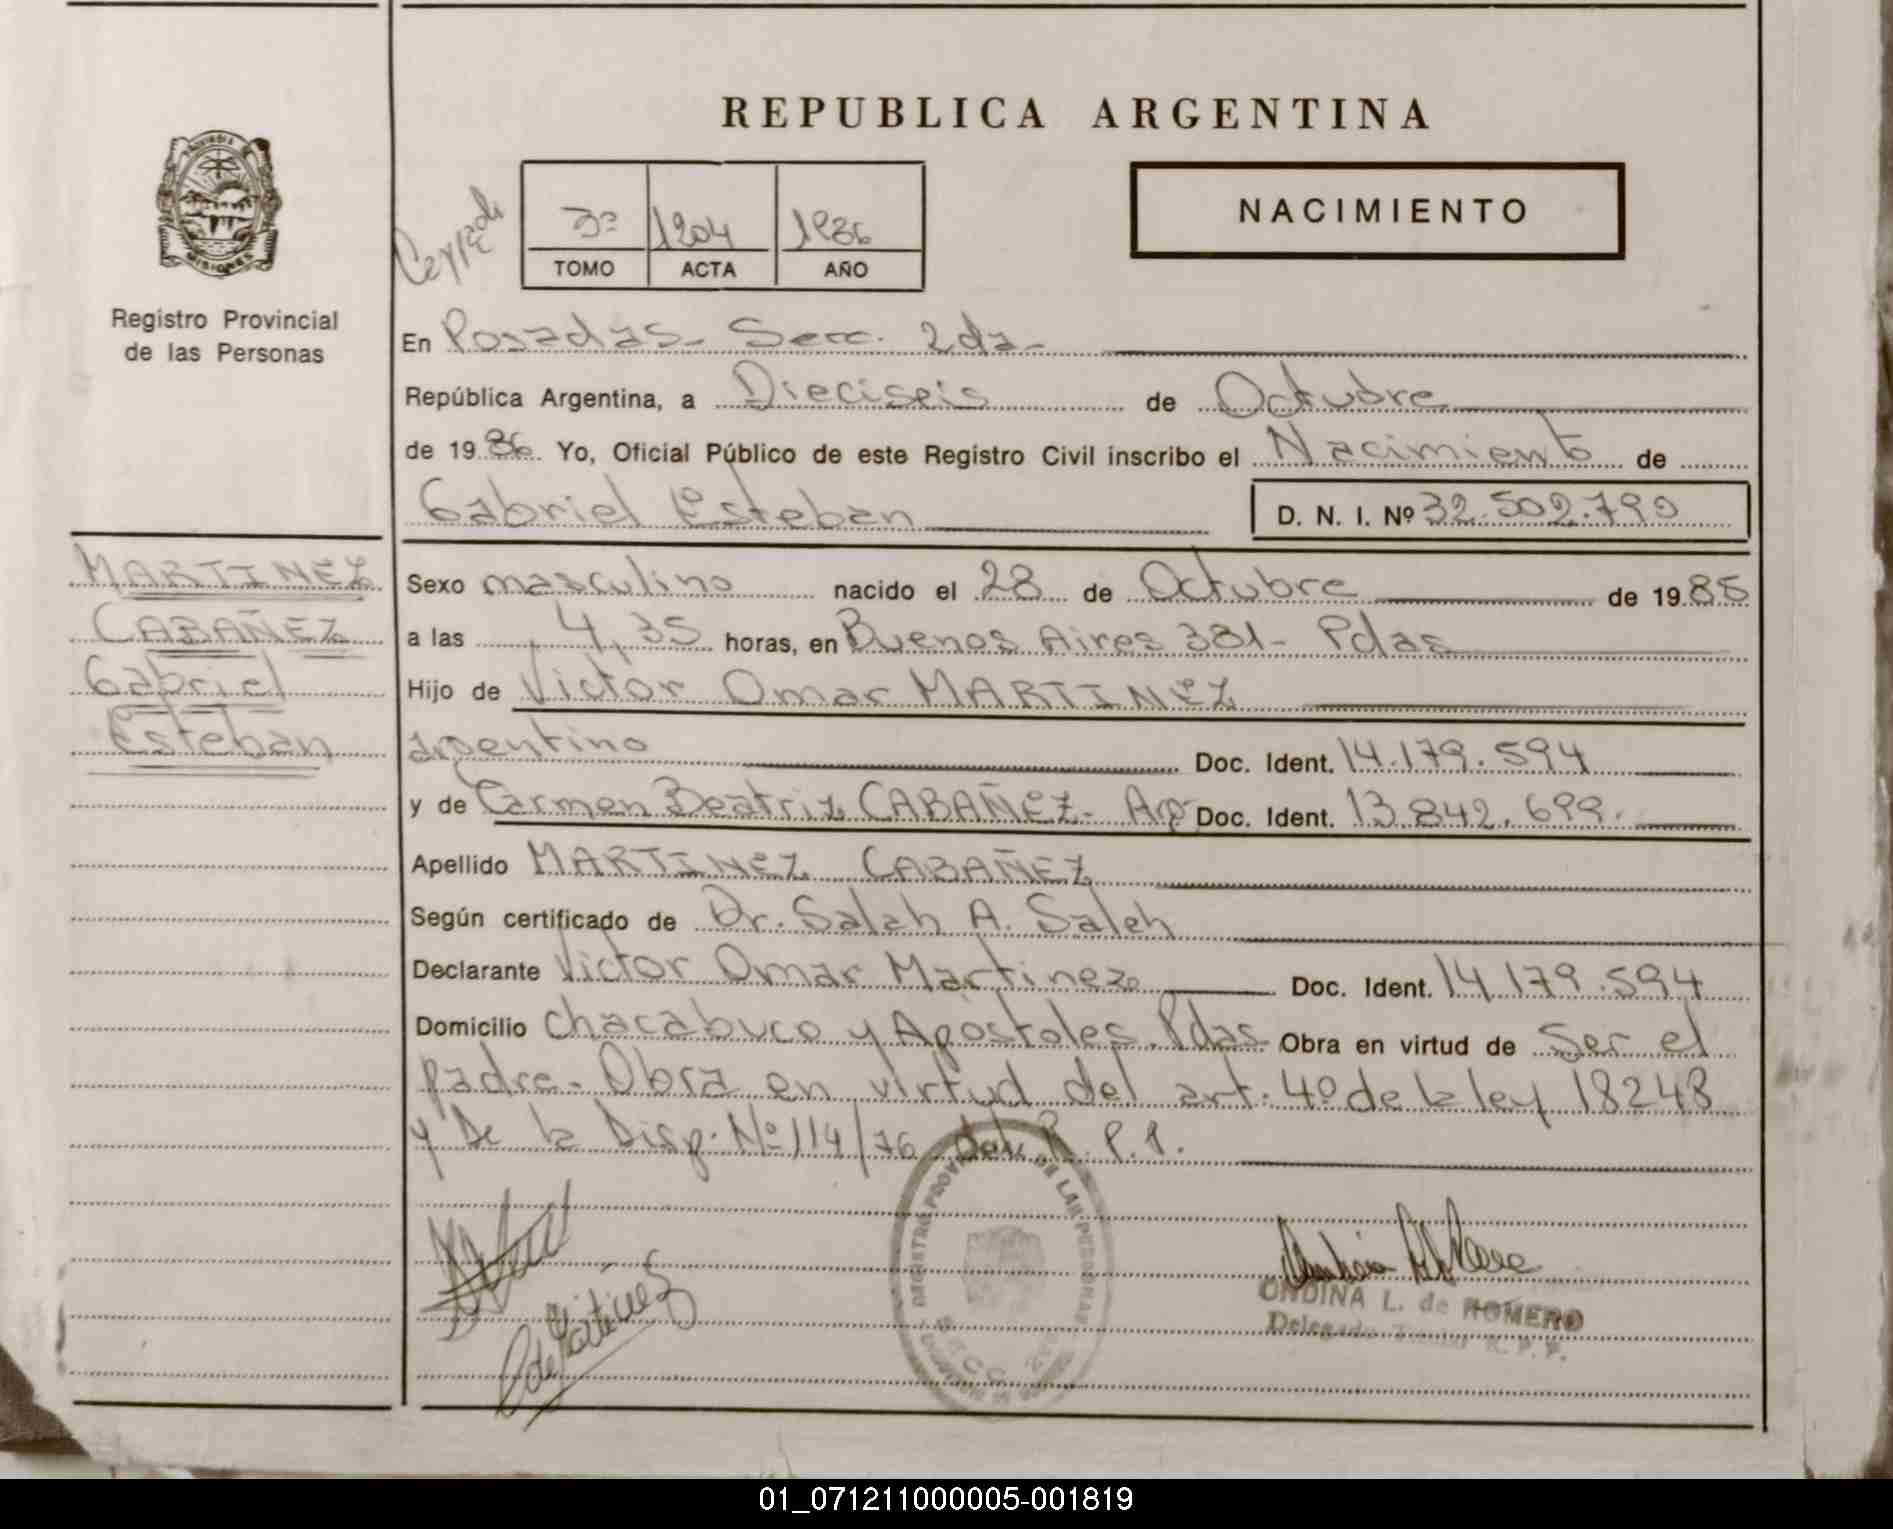 REPUBLICA ARGENTINA
NACIMIENTO
3º 1204 1986
TOMO ACTA AÑO
PROVINCIA DE
MISIONES
Registro Provincial
de las Personas
En Posadas - Secc. 2da -
República Argentina, a Dieciseis de Octubre
de 1986 Yo, Oficial Público de este Registro Civil inscribo el Nacimiento de
Gabriel Esteban D. N. I. Nº 32.502.790
MARTINEZ
CABAÑEZ
Gabriel
Esteban
Sexo masculino nacido el 28 de Octubre de 1985
a las 4,35 horas, en Buenos Aires 381 - Pdas
Hijo de Victor Omar MARTINEZ
argentino Doc. Ident. 14.179.594
y de Carmen Beatriz CABAÑEZ - Arg Doc. Ident. 13.842.699.
Apellido MARTINEZ CABAÑEZ
Según certificado de Dr. Salah A. Saleh
Declarante Victor Omar Martinez Doc. Ident. 14.179.594
Domicilio Chacabuco y Apostoles. Pdas Obra en virtud de ser el
padre - Obra en virtud del art. 4º de la ley 18248
y De la Disp. Nº 114/76 del R. P. P.
REGISTRO PROVINCIAL DE LAS PERSONAS
SECC. 2ª
ONDINA L. de ROMERO
R. P. P.
01_071211000005-001819